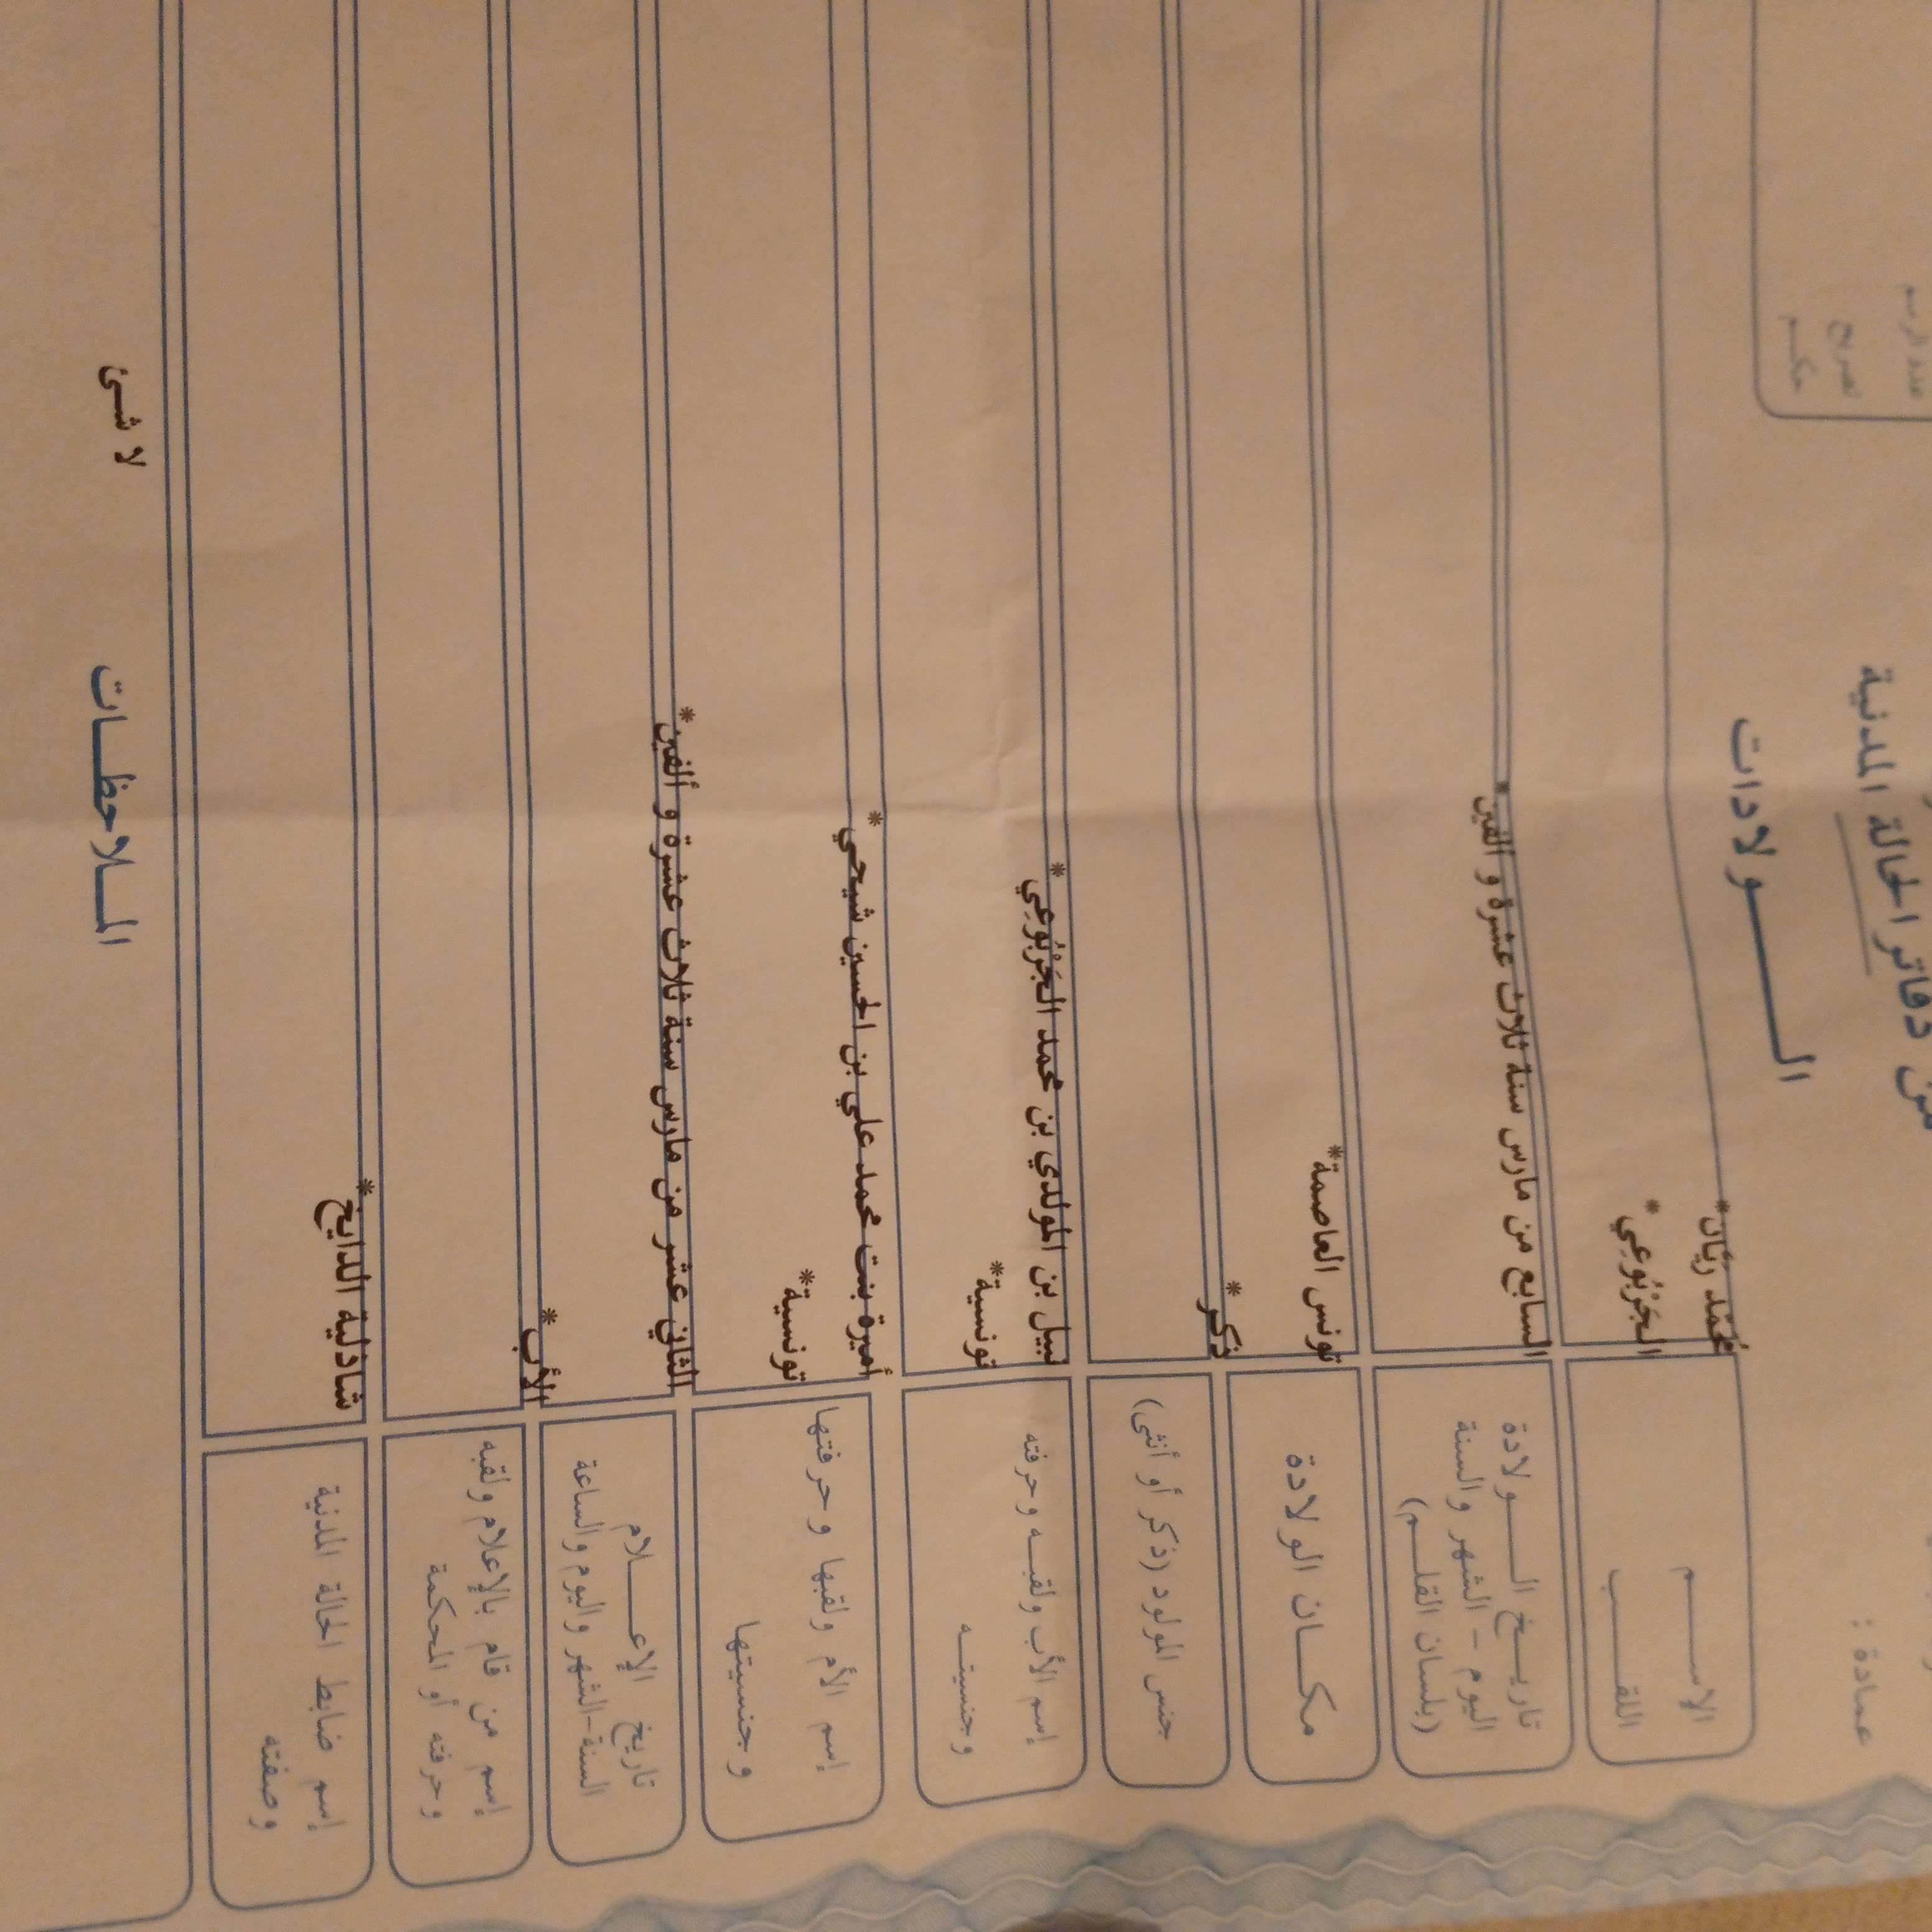 عدد الرسم
تصريح
حكم
من دفاتر الحالة المدنية
الـــولادات
عمادة :
الإســـم
محمّد ريّان*
اللقـــب
الجَرْبُوعِي*
تاريـــخ الــــولادة
اليوم - الشهر والسنة
(بلسان القلـــم)
السابع من مارس سنة ثلاث عشرة و ألفين*
مكـــان الولادة
تونس العاصمة*
جنس المولود (ذكر أو أنثى)
ذكر*
إسم الأب ولقبـــه وحرفته
وجنسيتـــه
نبيل بن المولدي بن محمد الجَرْبُوعِي*
تونسية*
إسم الأم ولقبها وحرفتها
وجنسيتها
أميرة بنت محمد علي بن الحسين شيحي*
تونسية*
تاريخ الإعـــلام
السنة-الشهر واليوم والساعة
الثاني عشر من مارس سنة ثلاث عشرة و ألفين*
إسم من قام بالإعلام ولقبه
وحرفته أو المحكمة
الأب*
إسم ضابط الحالة المدنية
وصفته
شاذلية الدايخ*
المـــلاحظـــات
لا شئ